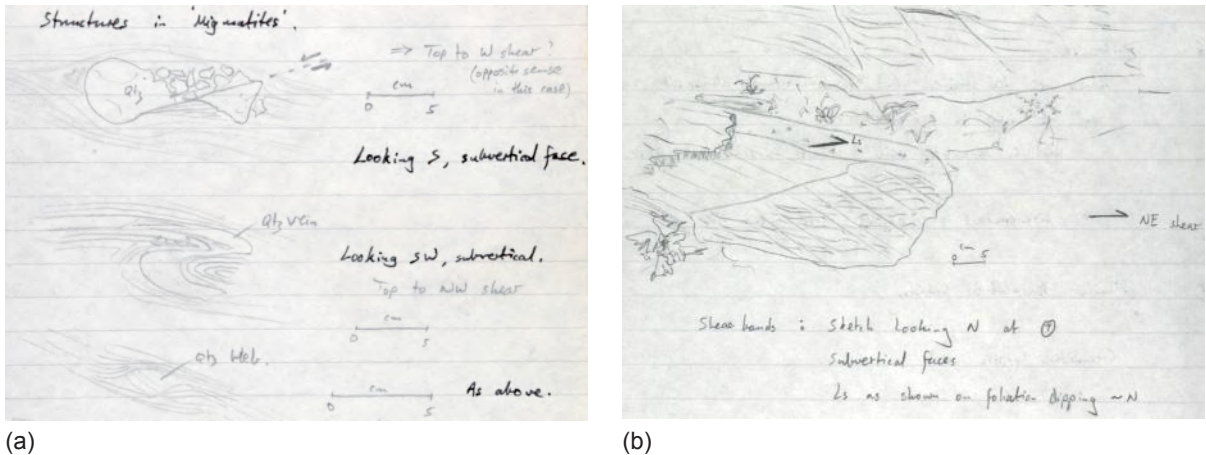 Structures in 'Migmatites'.
Qtz
=> Top to W shear?
(opposite sense
in this case)
cm
0 5
Looking S, subvertical face.
Qtz vein
Looking SW, subvertical.
Top to NW shear
cm
0 5
Qtz bleb.
cm
0 5
As above.
(a)
Ls
NE shear
cm
0 5
Shear bands : Sketch looking N at
Subvertical faces
Ls as shown on foliation dipping ~N
(b)